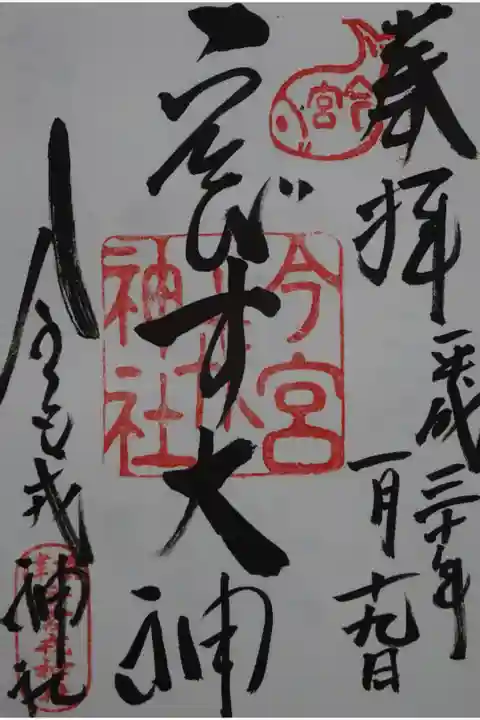 奉拝
平成三十年
一月十九日
えびす大神
今宮戎神社
今宮
今宮戎神社